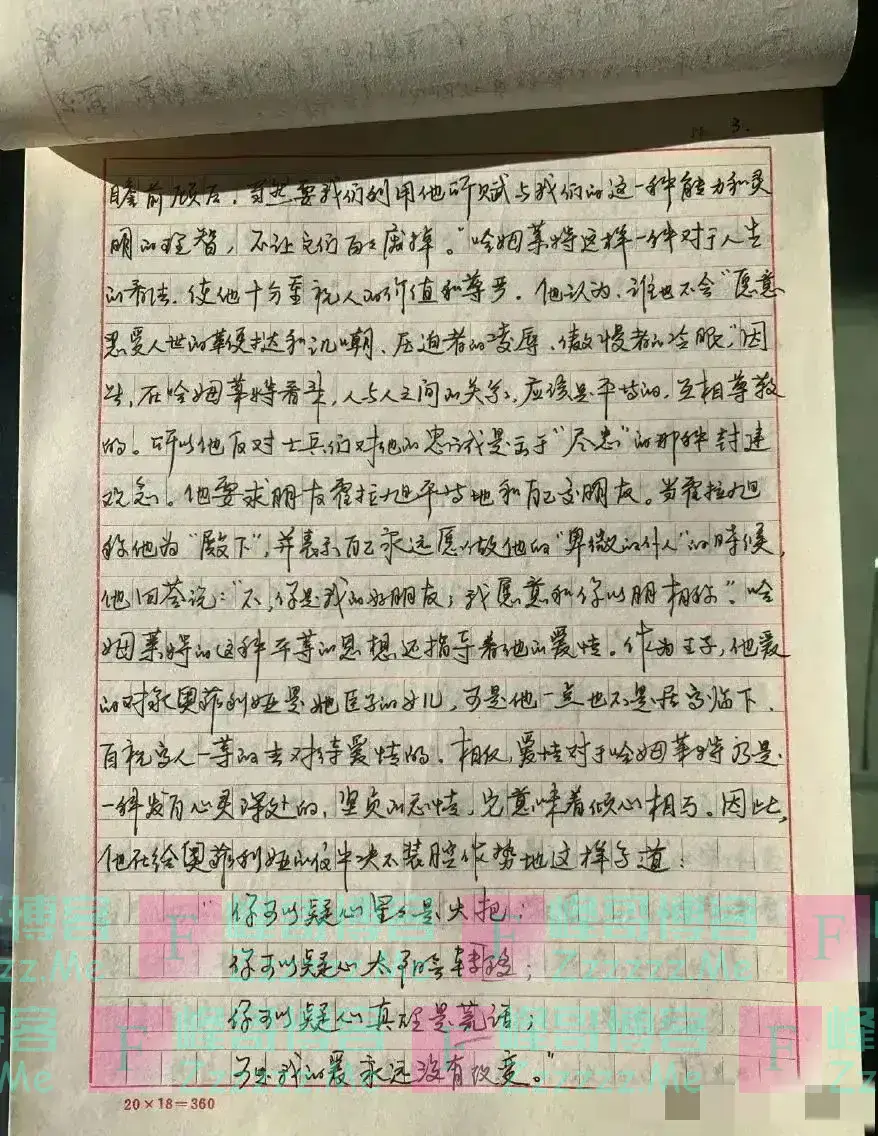 3.
瞻前顾后,当然要我们利用他所赋与我们的这一种能力和灵
明的理智,不让它们白白废掉。"哈姆莱特这样一种对于人生
的看法,使他十分重视人的价值和尊严。他认为,谁也不会"愿意
忍受人世的鞭挞和讥嘲、压迫者的凌辱、傲慢者的冷眼",因
此,在哈姆莱特看来,人与人之间的关系,应该是平等的,互相尊敬
的。所以他反对士兵们对他的忠诚是出于"尽忠"的那种封建
观念。他要求朋友霍拉旭平等地和自己交朋友。当霍拉旭
称他为"殿下",并表示自己永远愿以做他的"卑微的仆人"的时候,
他回答说:"不,你是我的好朋友;我愿意和你以朋相称"。哈
姆莱特的这种平等的思想还指导着他的爱情。作为王子,他爱
的对象奥菲利娅是她臣子的女儿,可是他一点也不是居高临下、
自视高人一等的去对待爱情的。相反,爱情对于哈姆莱特乃是
一种发自心灵深处的,坚贞的感情,它意味着倾心相与。因此,
他在给奥菲利娅的信中决不装腔作势地这样写道:
"你可以疑心星星是火把;
你可以疑心太阳会转移;
你可以疑心真理是谎话;
可是我的爱永远没有改变。"
20×18=360
F 峰哥博客
Zzzzzz.Me
F 峰哥博客
Zzzzzz.Me